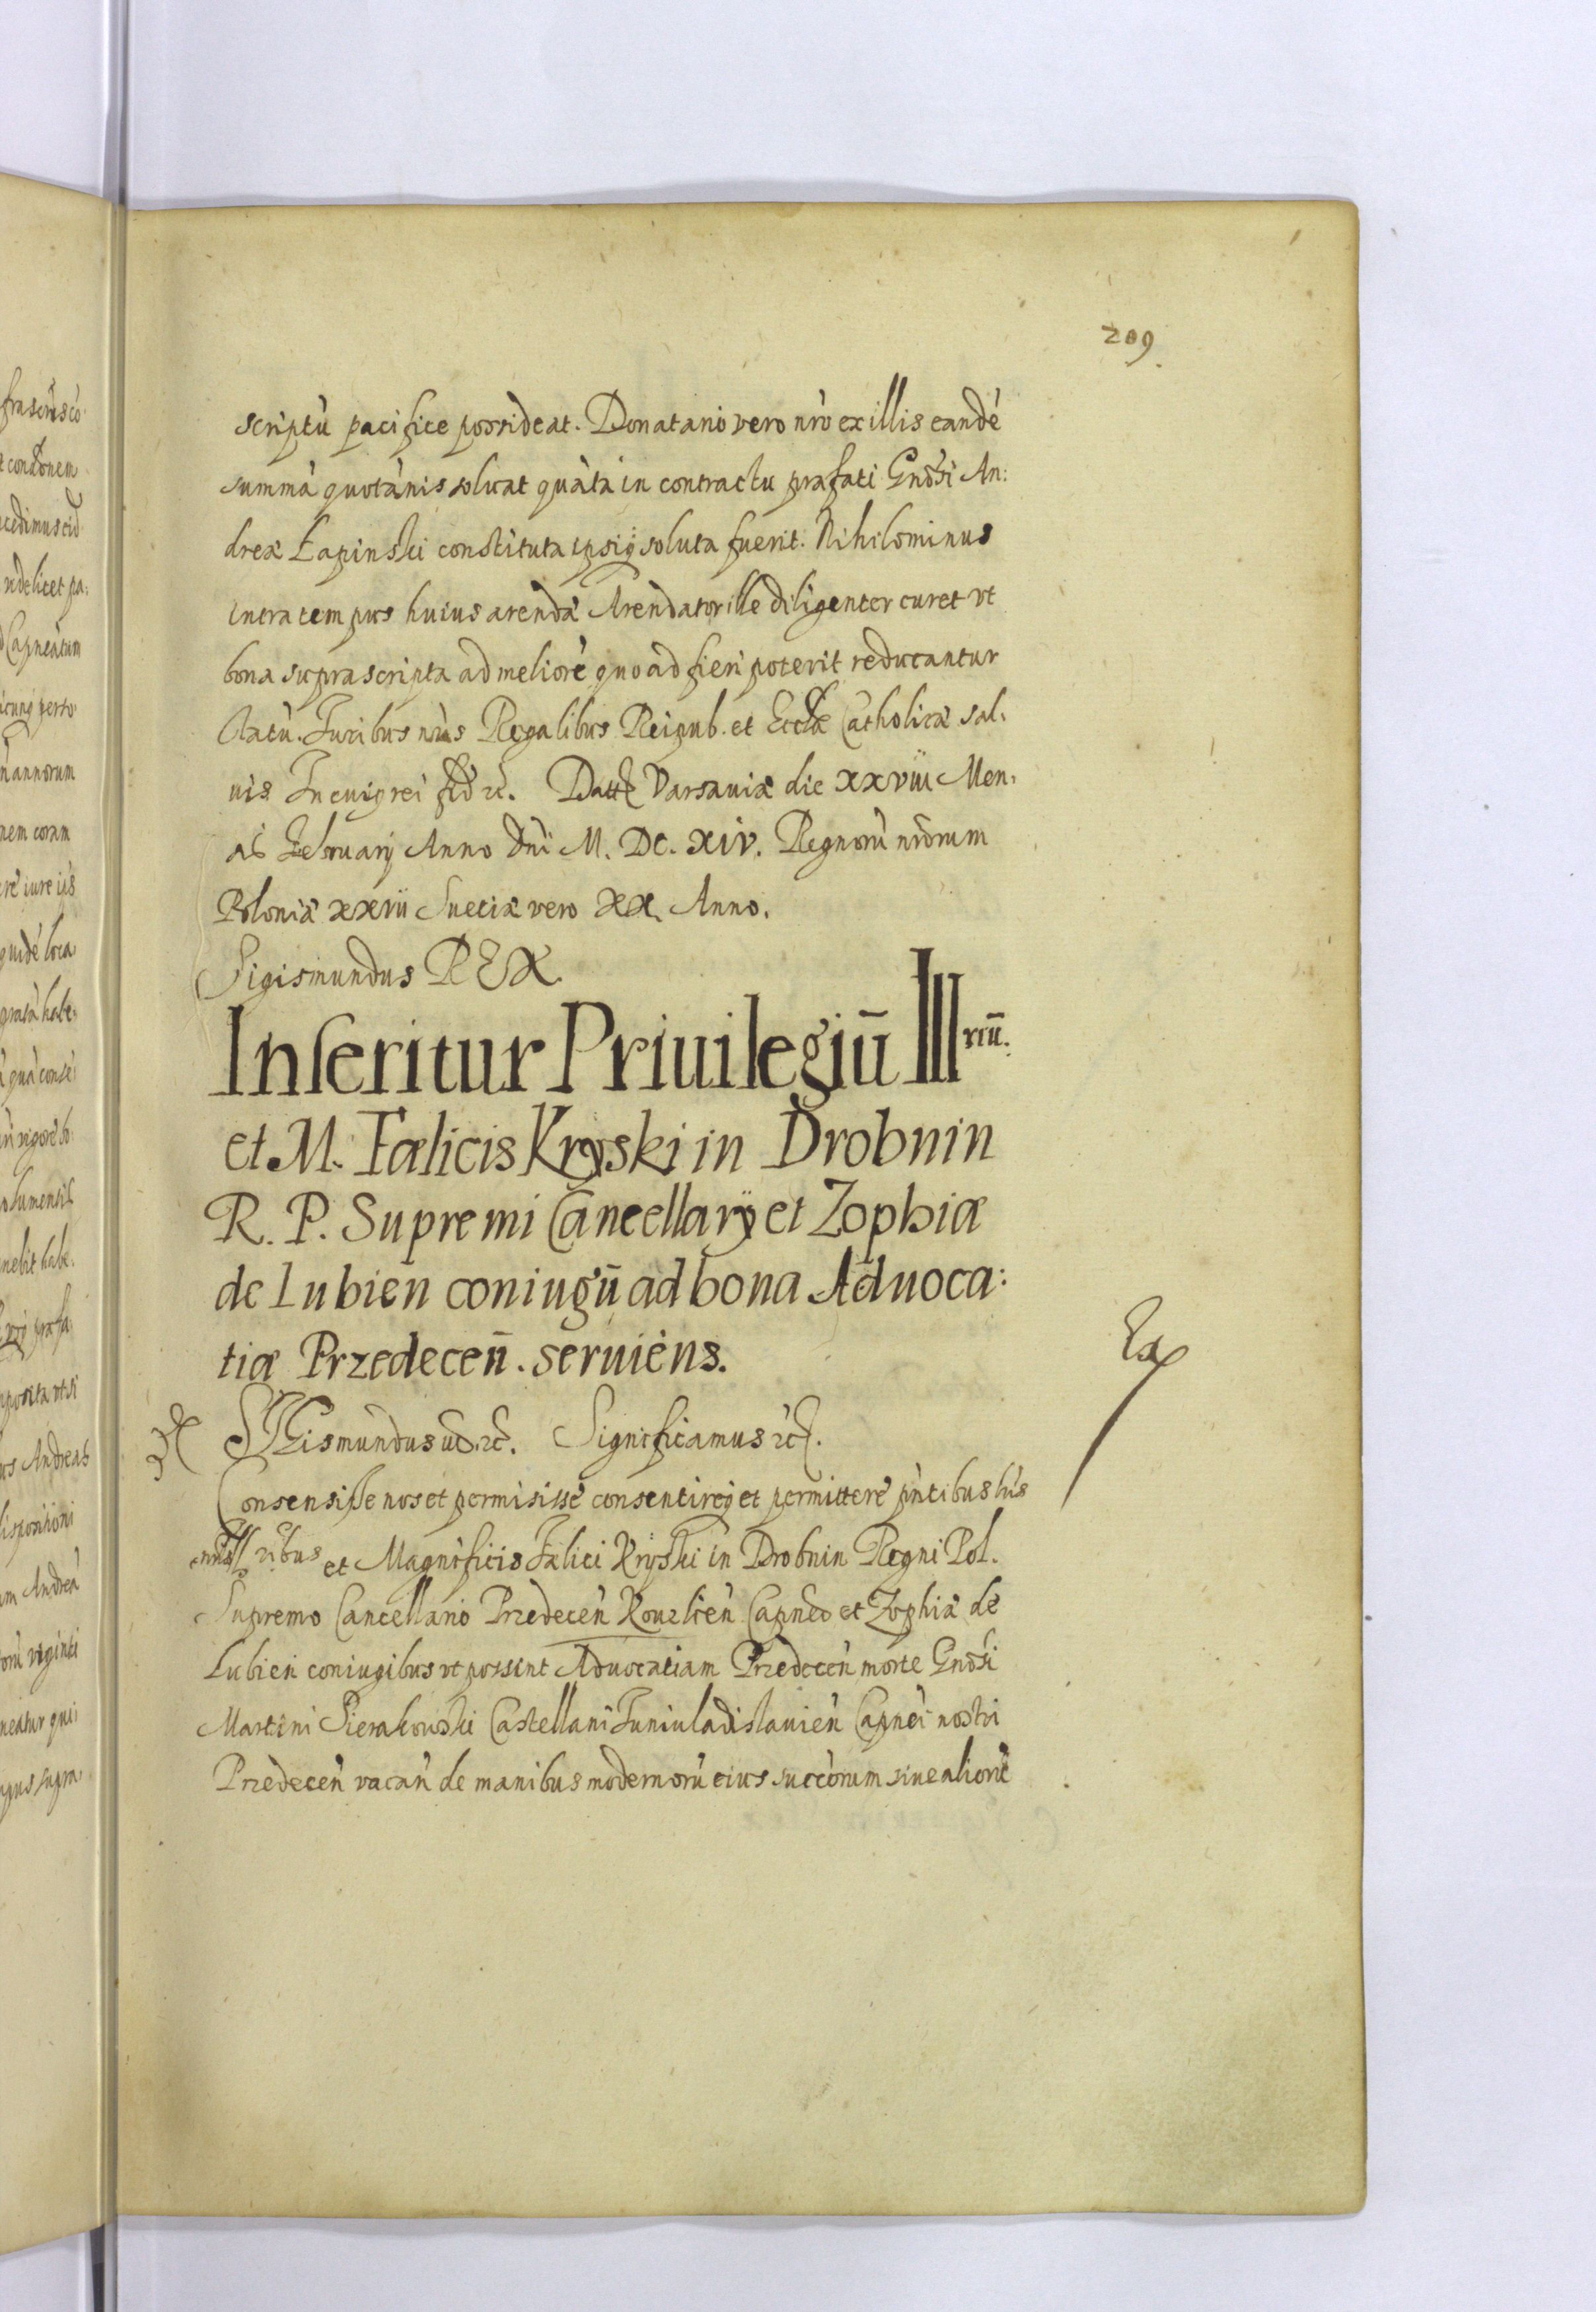 209
scriptũ pacifice possideat. Donatario vero nrõ ex illis eandẽ
summã quotãnis soluat quãta in contractu præfati Gnõsi An:
dreæ Łapinski constituta ipsiq soluta fuerit. Nihilominus
intra tempus huius arendæ Arendator ille diligenter curet vt
bona suprascripta ad meliorẽ quoad fieri poterit reducantur
statũ. Iuribus nris Regalibus Reipub. et Ecclæ Catholicæ sal:
uis In cuius rei fid. &c. Datt Varsauiæ die XXVIII Men:
sis February Anno Dni M. DC. XIV. Regnorũ nrõrum
Poloniæ XXVII Sueciæ vero XX. Anno.
Sigismundus REX.
Inseritur Priuilegiũ Ill riũ.
et M. Fælicis Kryski in Drobnin
R. P. Supremi Cancellarÿ et Zophiæ
de Lubien̄ coniugũ ad bona Aduoca:
tiæ Przedecen̄. seruiẽns.
SIGismundus &c. Significamus &c.
Consensisse nos et permisisse consentireq et permittere pñtibus lris
nris Ill ribus et Magnificis Fælici Kryski in Drobnin Regni Pol.
Supremo Cancellario Przedecen̄ Kouzlien̄ Capneo et Zophiæ de
Lubien̄ coniugibus vt possint Aduocatiam Przedecen̄ morte Gnõsi
Martini Sierakowski Castellani Iuniuladislauien̄ Capnei nostri
Przedecen̄ vacan̄ de manibus modernorũ eius succõrum siue aliorũ